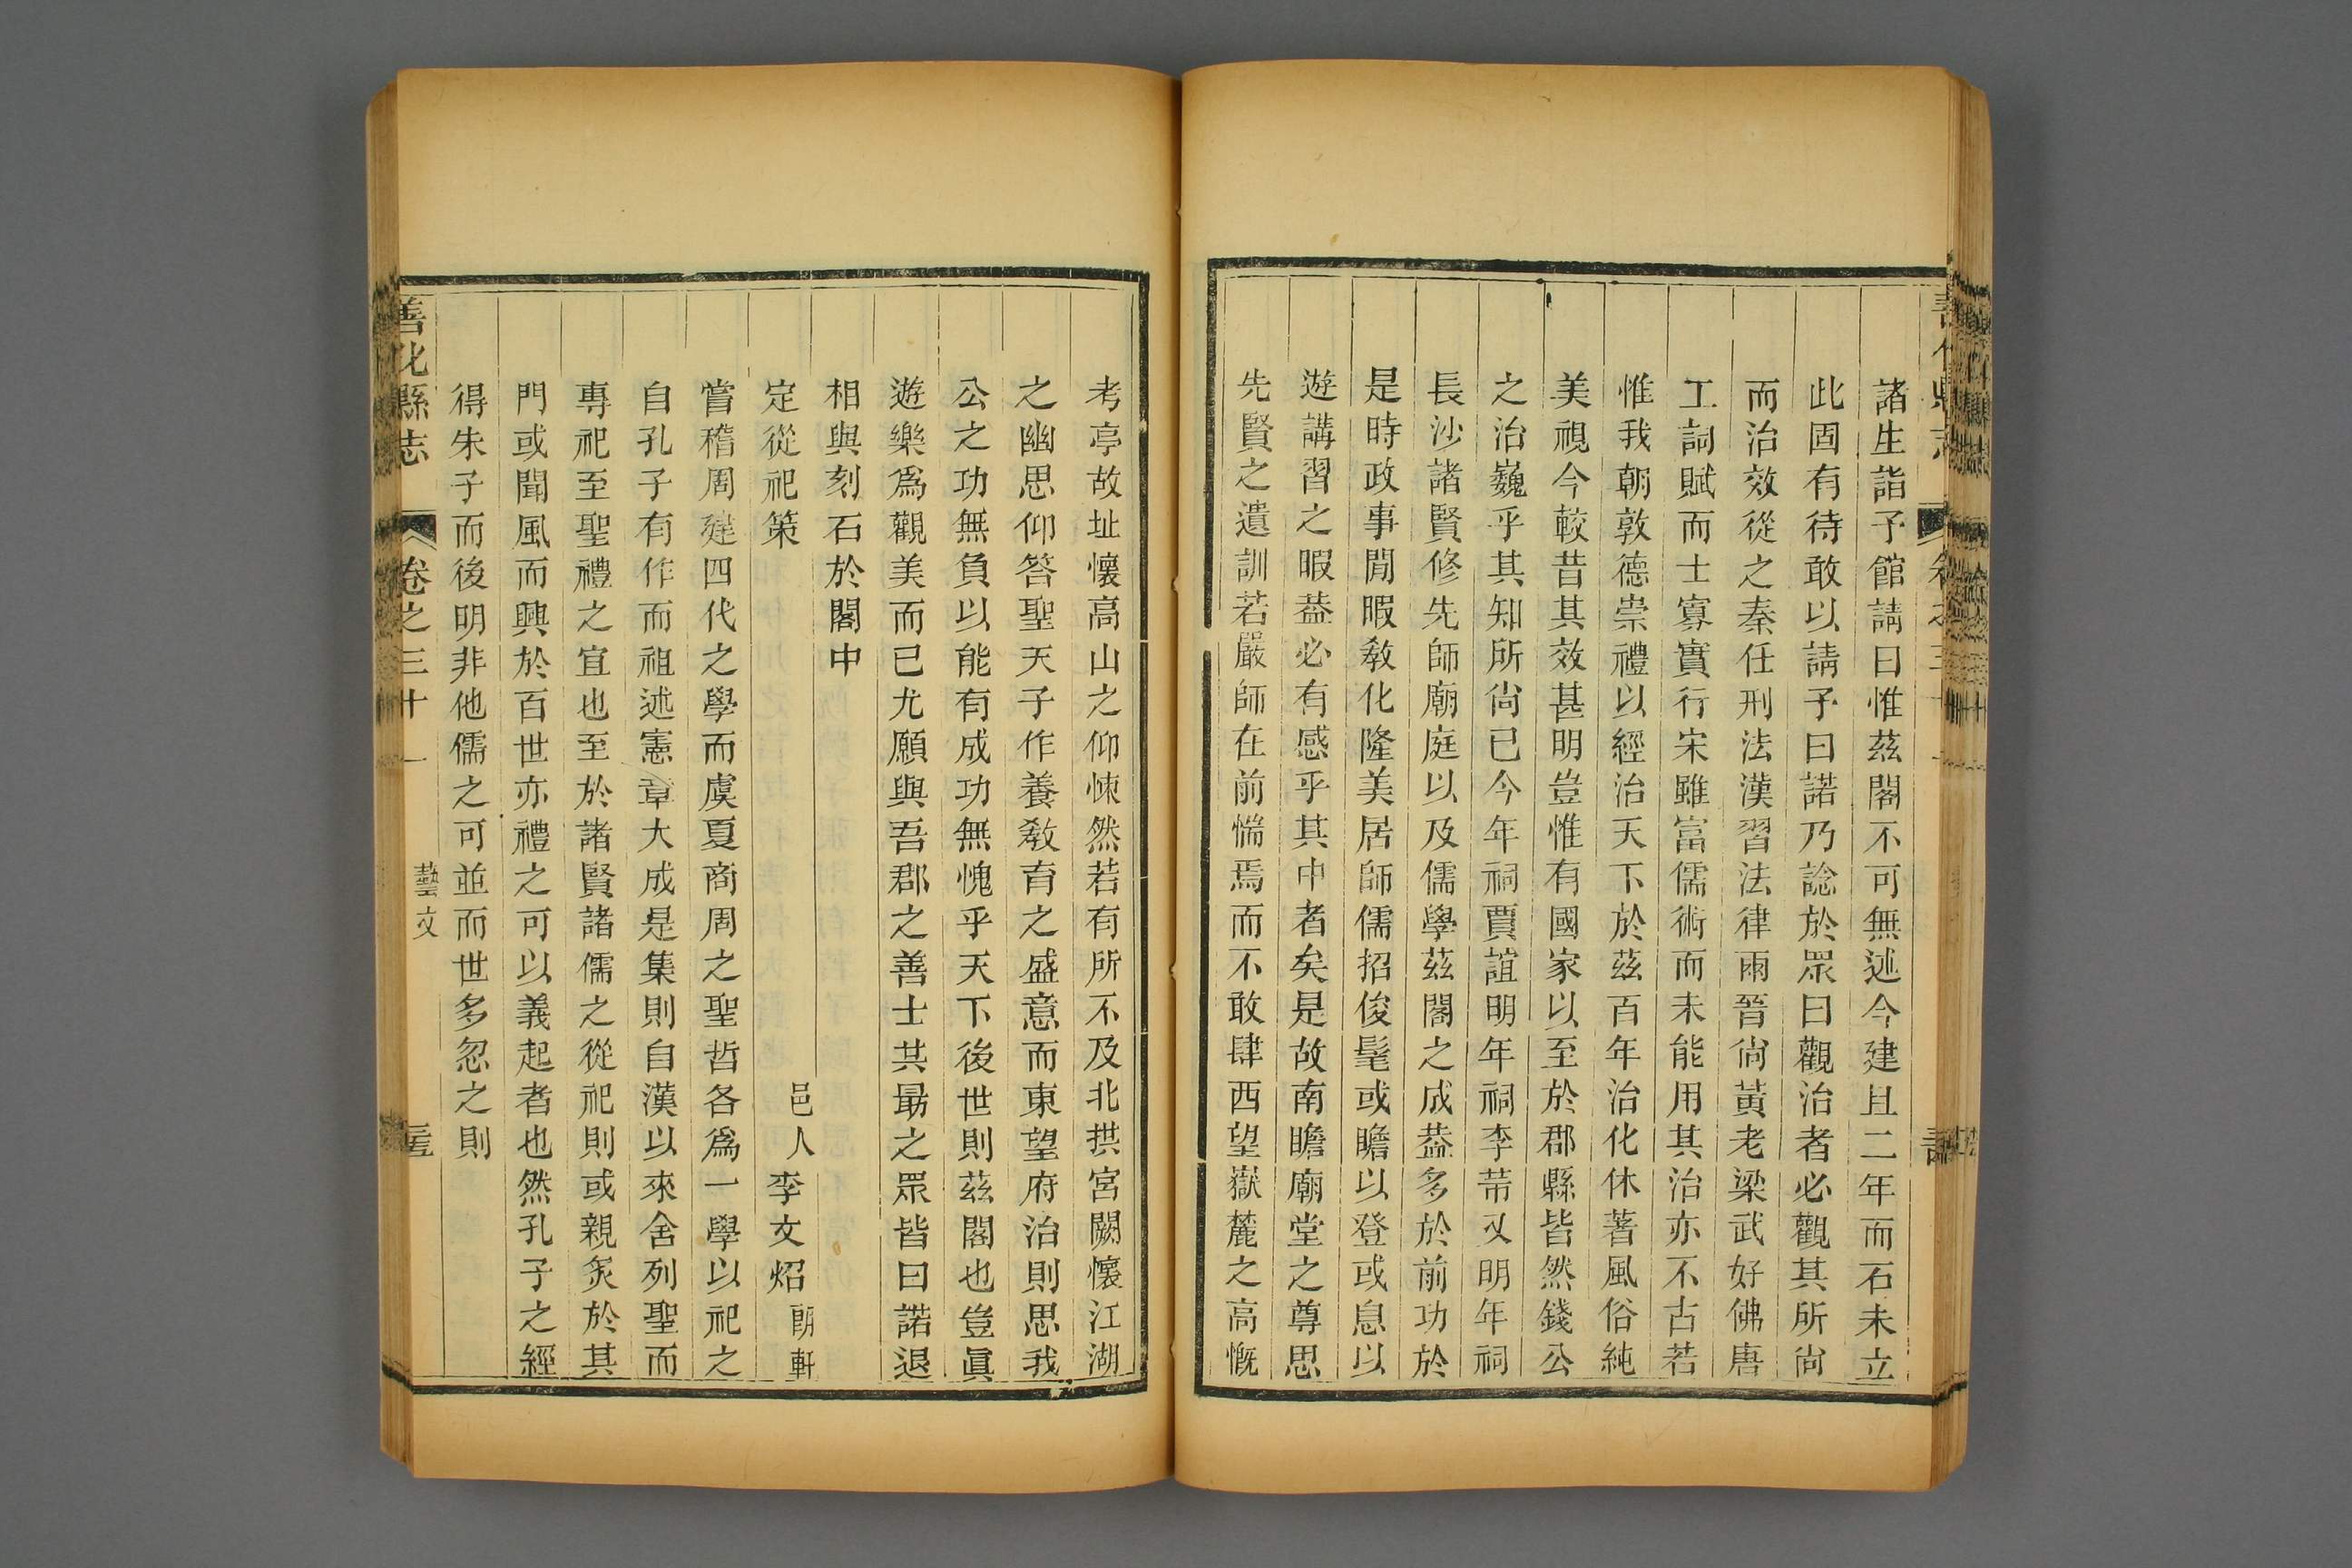 諸生詣予館請曰惟茲閣不可無述今建且二年而石未立
此固有待敢以請予曰諾乃諗於眾曰觀治者必觀其所尙
而治效從之秦任刑法漢習法律雨晉尙黃老梁武好佛唐
工詞賦而士寡實行宋雖富儒術而未能用其治亦不古若
惟我朝敦德崇禮以經治天下於茲百年治化休著風俗純
美視今較昔其效甚明豈惟有國家以至於郡縣皆然錢公
之治巍乎其知所尙已今年祠賈誼明年祠李芾又明年祠
長沙諸賢修先師廟庭以及儒學茲閣之成葢多於前功於
是時政事閒暇敎化隆美居師儒招俊髦或瞻以登或息以
遊講習之暇葢必有感乎其中者矣是故南瞻廟堂之尊思
先賢之遺訓若嚴師在前惴焉而不敢肆西望嶽麓之高慨
考亭故址懷高山之仰悚然若有所不及北拱宮闕懷江湖
之幽思仰答聖天子作養敎育之盛意而東望府治則思我
公之功無負以能有成功無愧乎天下後世則茲閣也豈眞
遊樂爲觀美而已尤願與吾郡之善士共勗之眾皆曰諾退
相與刻石於閣中
定從祀策
邑人李文炤朗軒
嘗稽周建四代之學而虞夏商周之聖哲各爲一學以祀之
自孔子有作而祖述憲章大成是集則自漢以來舍列聖而
專祀至聖禮之宜也至於諸賢諸儒之從祀則或親炙於其
門或聞風而興於百世亦禮之可以義起者也然孔子之經
得朱子而後明非他儒之可並而世多忽之則
善化縣志 卷之三十一 藝文